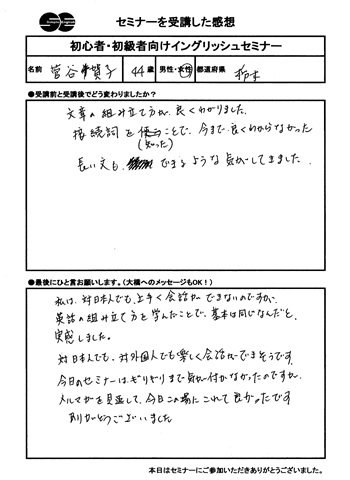 セミナーを受講した感想
初心者・初級者向けイングリッシュセミナー
名前 菅谷 賀子 44歳 男性・女性 都道府県 栃木
●受講前と受講後でどう変わりましたか？
文章の組み立て方が、良くわかりました。
接続詞を使うことで、今まで良くわからなかった
(知った)
長い文も、できるような気がしてきました。
●最後にひと言お願いします。(大橋へのメッセージもOK！)
私は、対日本人でも、上手く会話ができないのですが、
英語の組み立て方を学んだことで、基本は同じなんだと、
実感しました。
対日本人でも、対外国人でも楽しく会話ができそうです。
今日のセミナーは、ぎりぎりまで気が付かなかったのですが、
メルマガを見返して、今日この場にこれて良かったです
ありがとうございました
本日はセミナーにご参加いただきありがとうございました。